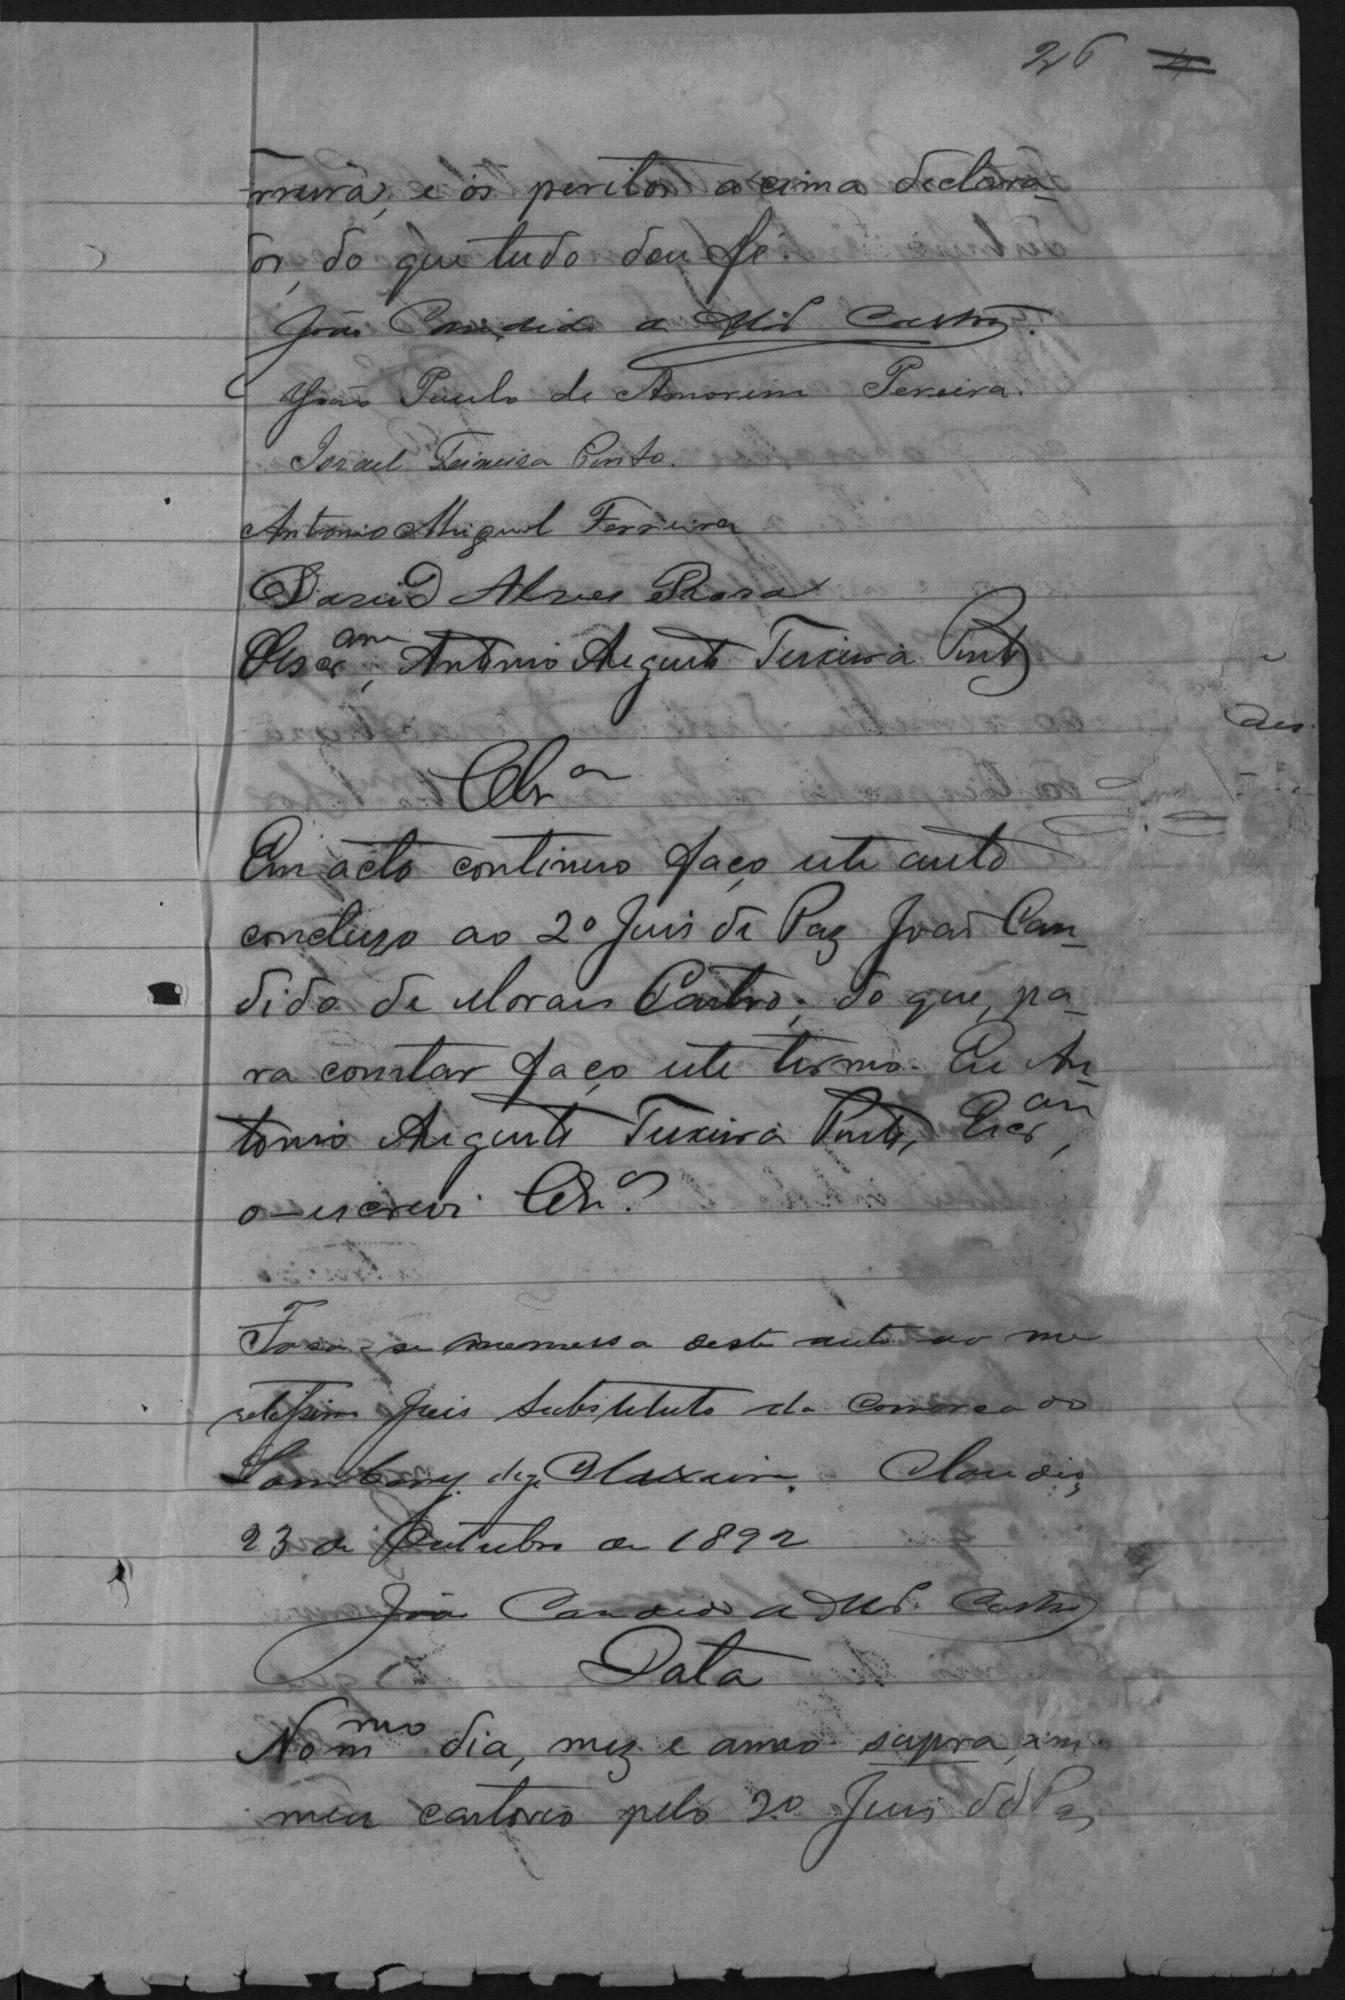 26
mura, e os peritos acima declara-
dos, do que tudo dou fé.
João Candido de Mis Castro.
João Paulo de Amorim Pereira.
Israel Teixeira Pinto.
Antonio Miguel Ferreira
David Alves Rosa
O Escram, Antonio Augusto Teixeira Pinto
Clsm
Em acto continuo faço este auto
concluso ao 2º Juis de Paz João Can-
dido de Morais Castro; do que, pa-
ra constar faço este termo. Eu An-
tonio Augusto Teixeira Pinto, Escram,
o-escrevi. Clsº
Faça-se remessa deste auto ao me
retissimo Juis Substituto da Comarca do
Claudio,
23 de Outubro de 1892
João Candido de Mis Castro
Data
No mmo dia, mez e anno supra, em
meu cartorio pelo 2º Juis de Paz